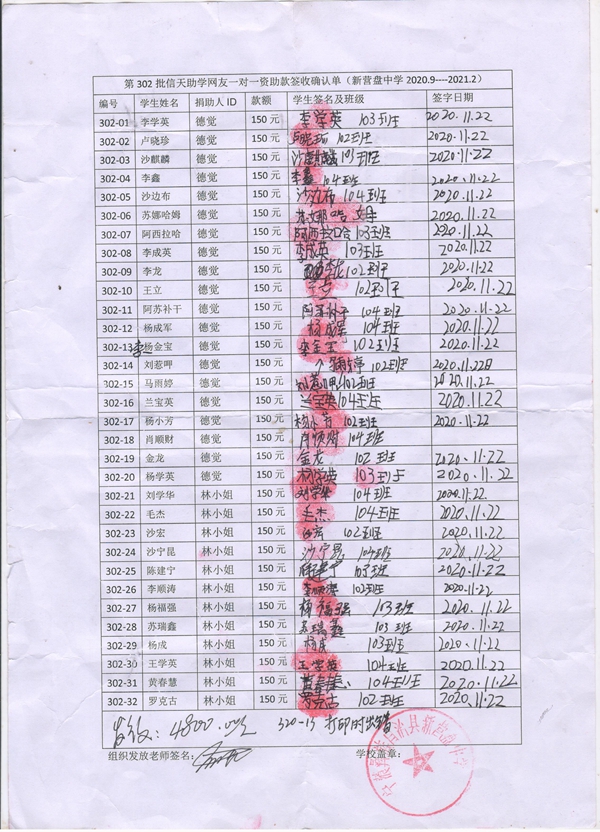 第 302 批信天助学网友一对一资助款签收确认单（新营盘中学 2020.9----2021.2）
编号 学生姓名 捐助人 ID 款额 学生签名及班级 签字日期
302-01 李学英 德觉 150 元 李学英 103班 2020.11.22
302-02 卢晓珍 德觉 150 元 102班 2020.11.22
302-03 沙麒麟 德觉 150 元 沙麒麟 101班 2020.11.22
302-04 李鑫 德觉 150 元 李鑫 104班 2020.11.22
302-05 沙边布 德觉 150 元 沙边布 104班 2020.11.22
302-06 苏娜哈姆 德觉 150 元 苏娜哈 2020.11.22
302-07 阿西拉哈 德觉 150 元 阿西拉哈 103班 2020.11.22
302-08 李成英 德觉 150 元 李成英 103班 2020.11.22
302-09 李龙 德觉 150 元 李龙 102班 2020.11.22
302-10 王立 德觉 150 元 王立 102班 2020.11.22
302-11 阿苏补干 德觉 150 元 阿苏补干 104班 2020.11.22
302-12 杨成军 德觉 150 元 杨成军 104班 2020.11.22
302-13 李 杨金宝 德觉 150 元 李金宝 102班 2020.11.22
302-14 刘惹呷 德觉 150 元 102班 2020.11.22日
302-15 马雨婷 德觉 150 元 刘惹呷 102班 2020.11.22
302-16 兰宝英 德觉 150 元 兰宝英 104班 2020.11.22
302-17 杨小芳 德觉 150 元 杨小芳 102班 2020.11.22
302-18 肖顺财 德觉 150 元 肖顺财 104班
302-19 金龙 德觉 150 元 金龙 102班 2020.11.22
302-20 杨学英 德觉 150 元 杨学英 103班 2020.11.22
302-21 刘学华 林小姐 150 元 刘学华 104班 2020.11.22
302-22 毛杰 林小姐 150 元 毛杰 104班 2020.11.22
302-23 沙宏 林小姐 150 元 沙宏 102班 2020.11.22
302-24 沙宁昆 林小姐 150 元 沙宁昆 104班 2020.11.22
302-25 陈建宁 林小姐 150 元 103班 2020.11.22
302-26 李顺涛 林小姐 150 元 李顺涛 102班 2020.11.22
302-27 杨福强 林小姐 150 元 杨福强 103班 2020.11.22
302-28 苏瑞鑫 林小姐 150 元 苏瑞鑫 103班 2020.11.22
302-29 杨成 林小姐 150 元 杨成 103班 2020.11.22
302-30 王学英 林小姐 150 元 王学英 104班 2020.11.22
302-31 黄春慧 林小姐 150 元 黄春慧 104班 2020.11.22
302-32 罗克古 林小姐 150 元 罗克古 102班 2020.11.22
发放：4800.00元 320-13 打印时出错
组织发放老师签名： 学校盖章：
自治县新营盘中学